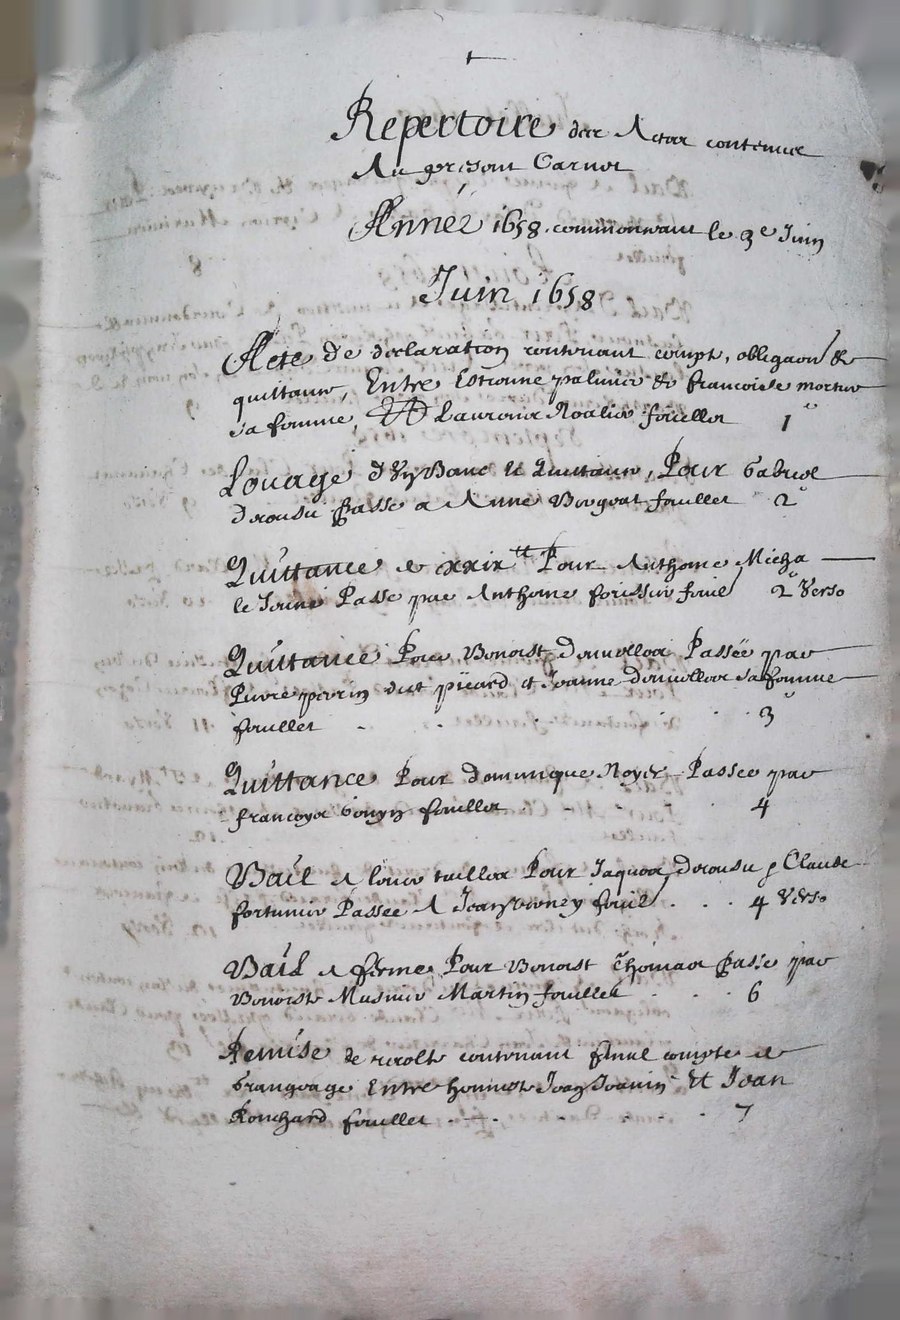 Repertoire des Actes contenus
Au present Carnet
Année 1658 commencant le 3e Juin
Juin 1658
Acte de declaration contenant compte, obligaon &
quittance, Entre Estienne palmier & francoise mortier
sa femme, Et Laurence feuillet 1
Louage d'Un Banc Et Quittance, Pour Gabriel
Passe a Anne feuillet 2
Quittance de xxix tt Pour Anthoine Micha
le Jeune Passe par Anthoine forissier feuil 2 Verso
Quittance Pour Benoist Passée par
Pierre perrin dict picard et Jeanne sa femme
feuillet 3
Quittance Pour dominique Noyer Passee par
francoys Gonyn feuillet 4
Bail A Pour Jaques p Claude
fortunier Passee A feuil 4 Verso
Bail A ferme Pour Benoist Thomas Passe par
Benoiste Musnier Martin feuillet 6
Remise de recolte contenant final compte de
Grangeage Entre honneste Jean Jeanin Et Jean
Ronchard feuillet 7